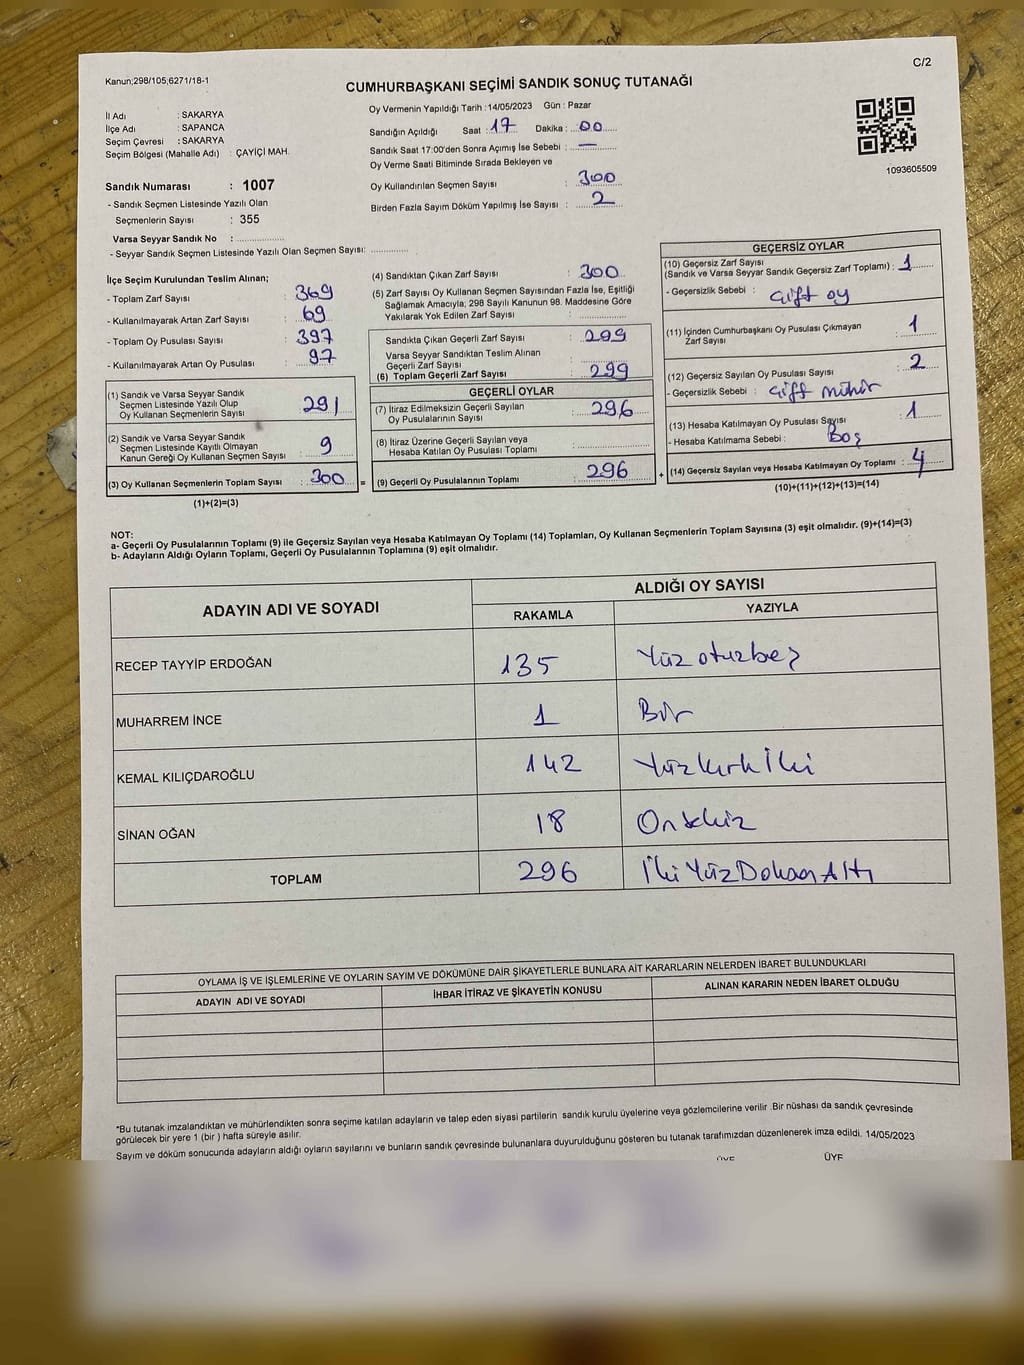 Kanun;298/105;6271/18-1
C/2
CUMHURBAŞKANI SEÇİMİ SANDIK SONUÇ TUTANAĞI
İl Adı : SAKARYA
İlçe Adı : SAPANCA
Seçim Çevresi : SAKARYA
Seçim Bölgesi (Mahalle Adı) : ÇAYİÇİ MAH.
Sandık Numarası : 1007
- Sandık Seçmen Listesinde Yazılı Olan
Seçmenlerin Sayısı : 355
Varsa Seyyar Sandık No : ..............
- Seyyar Sandık Seçmen Listesinde Yazılı Olan Seçmen Sayısı: ............
Oy Vermenin Yapıldığı Tarih :14/05/2023 Gün : Pazar
Sandığın Açıldığı Saat : 17 Dakika : 00
Sandık Saat 17:00'den Sonra Açımış İse Sebebi : —
Oy Verme Saati Bitiminde Sırada Bekleyen ve
Oy Kullandırılan Seçmen Sayısı : 300
Birden Fazla Sayım Döküm Yapılmış İse Sayısı : 2
1093605509
İlçe Seçim Kurulundan Teslim Alınan;
- Toplam Zarf Sayısı : 369
- Kullanılmayarak Artan Zarf Sayısı : 69
- Toplam Oy Pusulası Sayısı : 397
- Kullanılmayarak Artan Oy Pusulası : 97
(1) Sandık ve Varsa Seyyar Sandık
Seçmen Listesinde Yazılı Olup
Oy Kullanan Seçmenlerin Sayısı : 291
(2) Sandık ve Varsa Seyyar Sandık
Seçmen Listesinde Kayıtlı Olmayan
Kanun Gereği Oy Kullanan Seçmen Sayısı : 9
(3) Oy Kullanan Seçmenlerin Toplam Sayısı : 300 =
(1)+(2)=(3)
(4) Sandıktan Çıkan Zarf Sayısı : 300
(5) Zarf Sayısı Oy Kullanan Seçmen Sayısından Fazla İse, Eşitliği
Sağlamak Amacıyla, 298 Sayılı Kanunun 98. Maddesine Göre
Yakılarak Yok Edilen Zarf Sayısı :
Sandıkta Çıkan Geçerli Zarf Sayısı : 299
Varsa Seyyar Sandıktan Teslim Alınan
Geçerli Zarf Sayısı :
(6) Toplam Geçerli Zarf Sayısı : 299
GEÇERLİ OYLAR
(7) İtiraz Edilmeksizin Geçerli Sayılan
Oy Pusulalarının Sayısı : 296
(8) İtiraz Üzerine Geçerli Sayılan veya
Hesaba Katılan Oy Pusulası Toplamı :
(9) Geçerli Oy Pusulalarının Toplamı : 296 +
GEÇERSİZ OYLAR
(10) Geçersiz Zarf Sayısı
(Sandık ve Varsa Seyyar Sandık Geçersiz Zarf Toplamı) : 1
- Geçersizlik Sebebi : çift oy
(11) İçinden Cumhurbaşkanı Oy Pusulası Çıkmayan
Zarf Sayısı : 1
(12) Geçersiz Sayılan Oy Pusulası Sayısı : 2
- Geçersizlik Sebebi : çift mühür
(13) Hesaba Katılmayan Oy Pusulası Sayısı : 1
- Hesaba Katılmama Sebebi : Boş
(14) Geçersiz Sayılan veya Hesaba Katılmayan Oy Toplamı : 4
(10)+(11)+(12)+(13)=(14)
NOT:
a- Geçerli Oy Pusulalarının Toplamı (9) ile Geçersiz Sayılan veya Hesaba Katılmayan Oy Toplamı (14) Toplamları, Oy Kullanan Seçmenlerin Toplam Sayısına (3) eşit olmalıdır. (9)+(14)=(3)
b- Adayların Aldığı Oyların Toplamı, Geçerli Oy Pusulalarının Toplamına (9) eşit olmalıdır.
ADAYIN ADI VE SOYADI
ALDIĞI OY SAYISI
RAKAMLA YAZIYLA
RECEP TAYYİP ERDOĞAN 135 Yüz otuzbeş
MUHARREM İNCE 1 Bir
KEMAL KILIÇDAROĞLU 142 Yüzkırk İki
SİNAN OĞAN 18 Onsekiz
TOPLAM 296 İki Yüz Doksan Altı
OYLAMA İŞ VE İŞLEMLERİNE VE OYLARIN SAYIM VE DÖKÜMÜNE DAİR ŞİKAYETLERLE BUNLARA AİT KARARLARIN NELERDEN İBARET BULUNDUKLARI
ADAYIN ADI VE SOYADI İHBAR İTİRAZ VE ŞİKAYETİN KONUSU ALINAN KARARIN NEDEN İBARET OLDUĞU
*Bu tutanak imzalandıktan ve mühürlendikten sonra seçime katılan adayların ve talep eden siyasi partilerin sandık kurulu üyelerine veya gözlemcilerine verilir .Bir nüshası da sandık çevresinde
görülecek bir yere 1 (bir ) hafta süreyle asılır.
Sayım ve döküm sonucunda adayların aldığı oyların sayılarını ve bunların sandık çevresinde bulunanlara duyurulduğunu gösteren bu tutanak tarafımızdan düzenlenerek imza edildi. 14/05/2023
ÜYE ÜYE